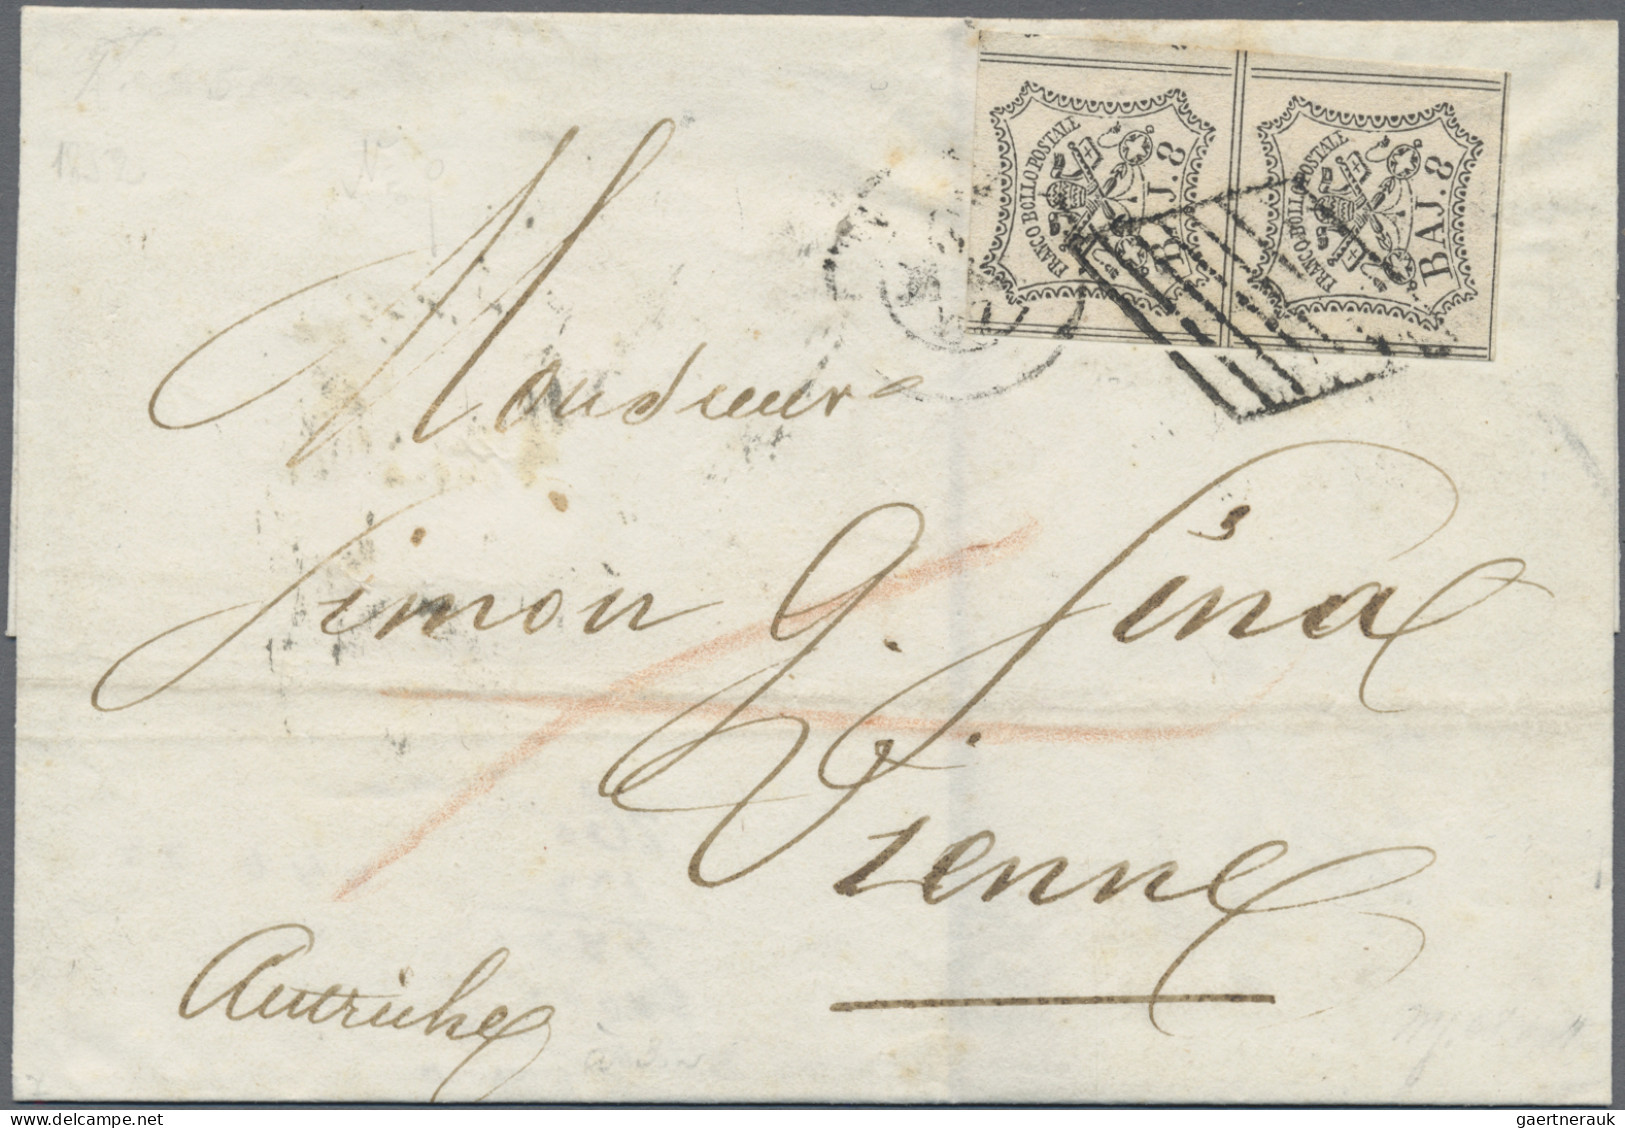 FRANCO BOLLO POSTALE
BAJ. 8
FRANCO BOLLO POSTALE
BAJ. 8
Monsieur
Simon G. Sina
Vienne
Autriche
gaertnerauk